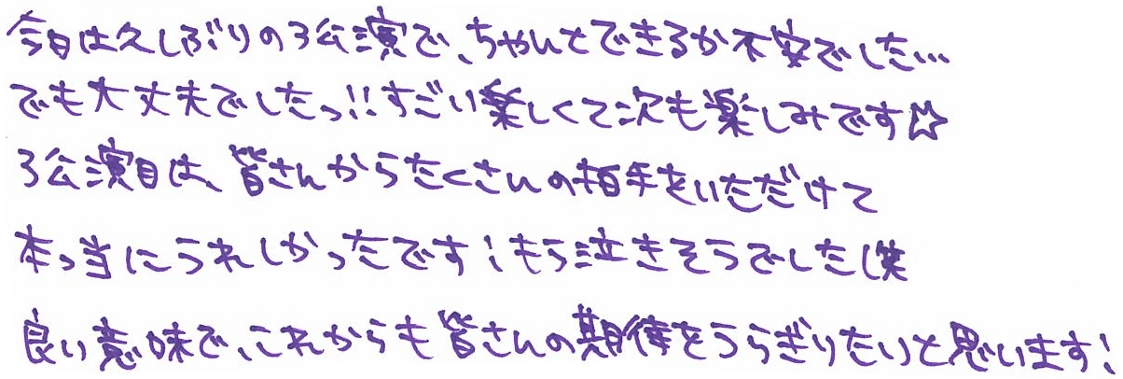 今日は久しぶりの3公演で、ちゃんとできるか不安でした…
でも大丈夫でしたっ!!すごい楽しくて次も楽しみです☆
3公演目は、皆さんからたくさんの拍手をいただけて
本っ当にうれしかったです!もう泣きそうでした(笑
良い意味で、これからも皆さんの期待をうらぎりたいと思います!